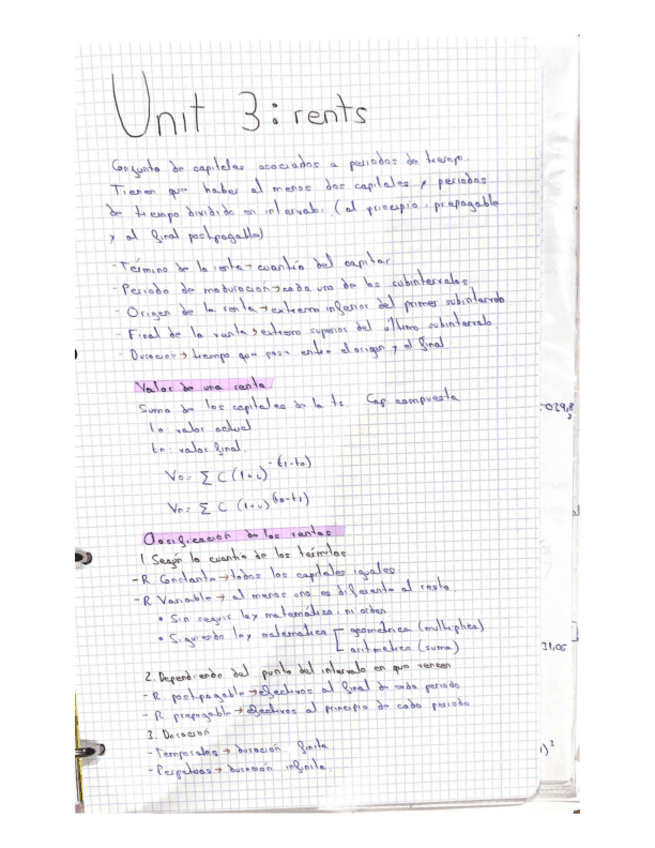 Unit 3: rents
Conjunto de capitales asociados a periodos de tiempo.
Tienen que haber al menos dos capitales y periodos
de tiempo dividido en intervalos. (al principio: prepagable
y al final postpagable)
- Término de la renta → cuantía del capital
- Periodo de maduración → cada uno de los subintervalos
- Origen de la renta → extremo inferior del primer subintervalo
- Final de la renta → extremo superior del último subintervalo
- Duración → tiempo que pasa entre el origen y el final
Valor de una renta
Suma de los capitales de la ts. Cap compuesta
to: valor actual
tn: valor final
V0 = Σ C (1+i)^-(t-t0)
Vn = Σ C (1+i)^(tn-t1)
Clasificación de las rentas
1. Según la cuantía de los términos
- R. Constante → todos los capitales iguales.
- R Variable → al menos uno es diferente al resto.
• Sin seguir ley matemática, ni orden
• Siguiendo ley matemática geometrica (multiplica)
aritmetica (suma)
2. Dependiendo del punto del intervalo en que vencen
- R. postpagable → efectivos al final de cada periodo
- R. prepagable → efectivos al principio de cada periodo
3. Duración
- Temporales → duración finita
- Perpetuas → duración infinita
31,05